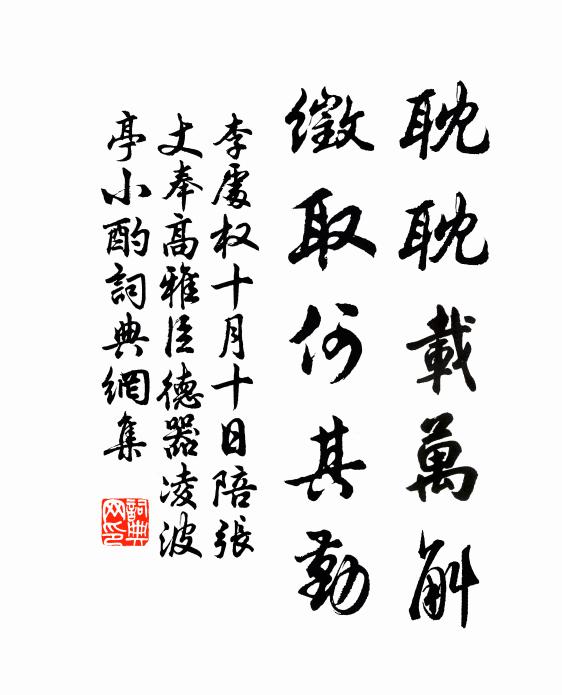 耽耽載萬斛
徵取何其勤
李處权十月十日陪張
丈奉高雅臣德器凌波
亭小酌詞典網集
詞典网印